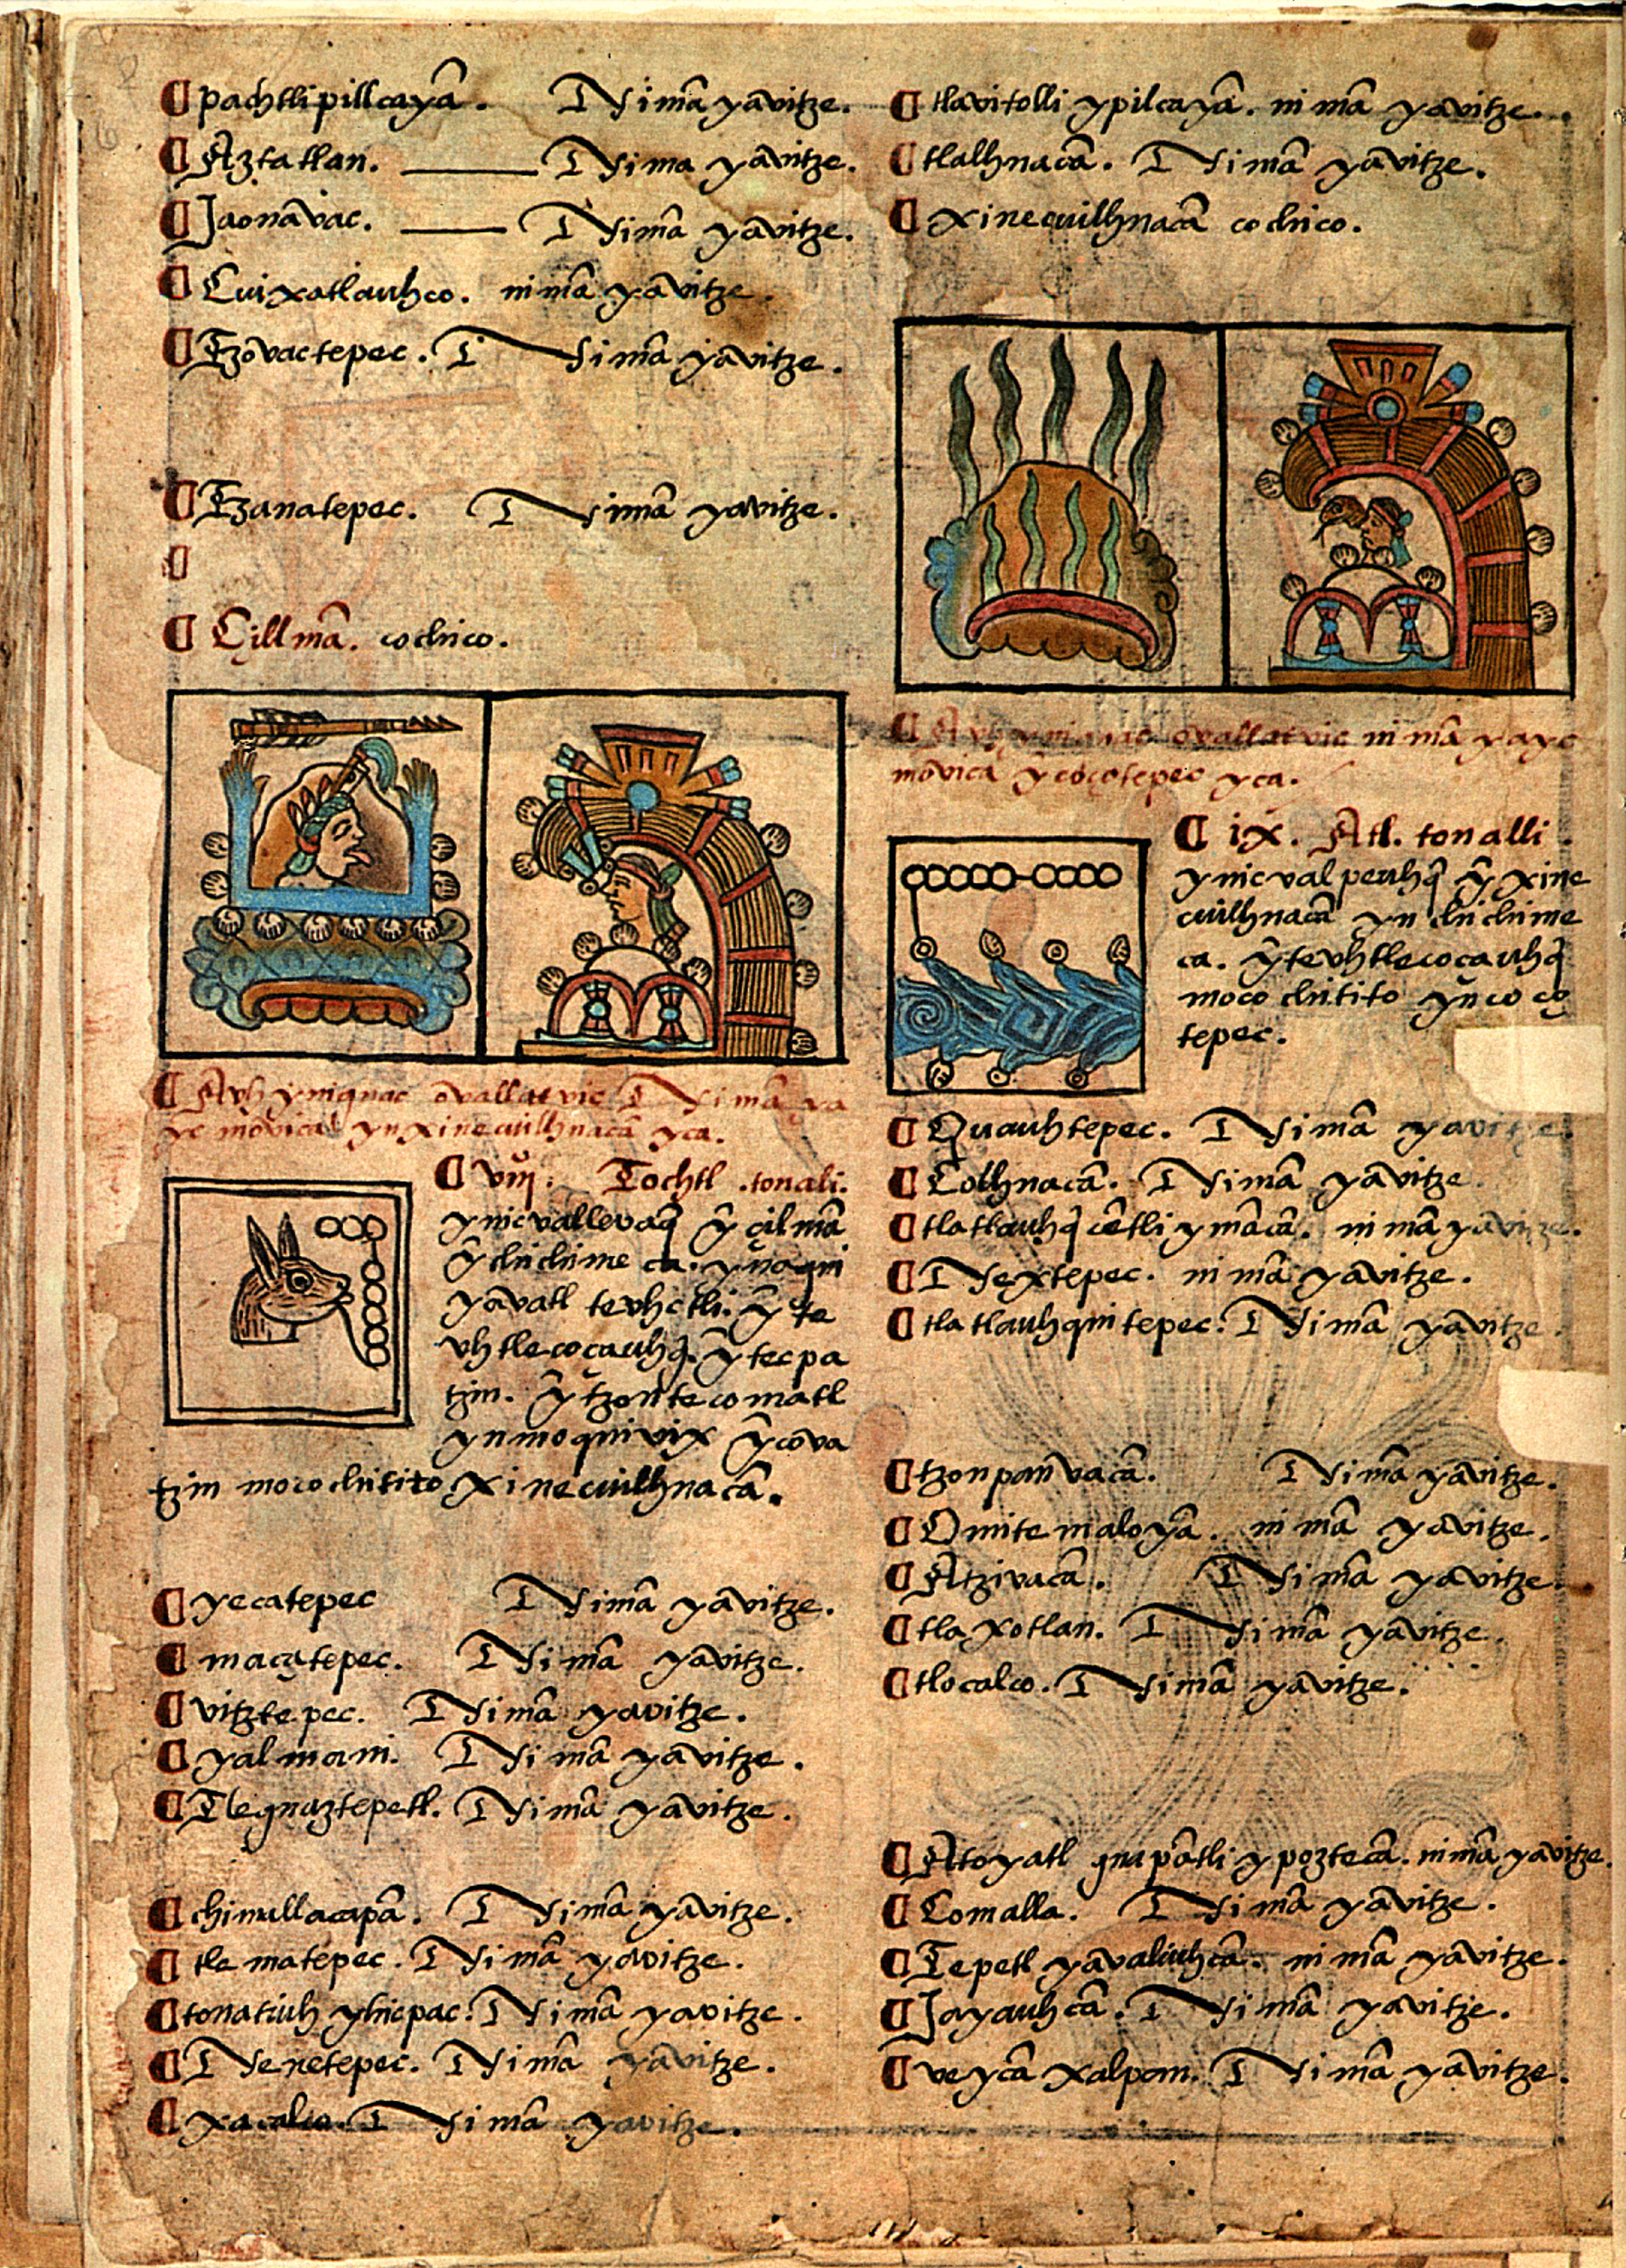 pachtlipillcayā. Nimā yāvitze.
Aztatlan. Nima yāvitze.
Jaonāvac. Nimā yāvitze.
Cuixatlauhco. nimā yāvitze.
Tzōvactepec. Nimā yāvitze.
Tzanatepec. Nimā yāvitze.
Çillmā. cochico.
Auh yniquac ōvallatvic Nimā ya
yc mōvicaʼ ynxinecuilhuacā yca.
viij. Tochtl .tonali.
ynicvallevaq̄ ȳ çilmā
ȳ chichimeca. ynaqui
yāvatl tevhctli. ȳ te
vhtlecocauhq̄. ȳ tecpa
tzin. ȳ tzontecomatl
ynmoquivix ȳcōva
tzin mocochitito Xinecuilhuacā.
yecatepec Nimā yāvitze.
maçatepec. Nimā yāvitze.
vitztepec. Nimā yavitze.
yalmani. Nimā yāvitze.
Tlequaztepetl. Nimā yāvitze.
chimallacapā. Nimā yāvitze.
tlematepec. Nimā yavitze.
tonatiuh yhicpac. Nimā yavitze.
Nenetepec. Nimā yāvitze.
xacalco. Nimā yavitze.
tlavitolli ypilcayā. nimā yavitze.
tlalhuacā. Nimā yāvitze.
xinecuilhuacā cochico.
ovallatvic nimā yayc
mōvica ȳcocotepec yca.
ix. Atl. tonalli.
ynicvalpeuhq̄ ȳ xine
cuilhuacā yn chichime
ca. ȳtevhtlecocauhq̄
mocochitito ȳncoco
tepec.
Quauhtepec. Nimā yavitze.
Colhuacā. Nimā yāvitze.
tlatlauhq̄ cētli ymācā. nimā yāvitze.
Nextepec. nimā yāvitze.
tlatlauhquitepec. Nimā yāvitze.
tzonpanvacā. Nimā yāvitze.
Omitemaloyā. nimā yavitze.
Atzivacā. Nimā yavitze.
tlaxotlan. Nimā yavitze.
tlocalco. Nimā yavitze.
Atoyatl quapātli ypoztecā. nimā yavitze.
Comalla. Nimā yāvitze.
Tepetl yāvaliuhcā. nimā yāvitze.
Jayauhcā. Nimā yavitze.
veycā xalpan. Nimā yāvitze.